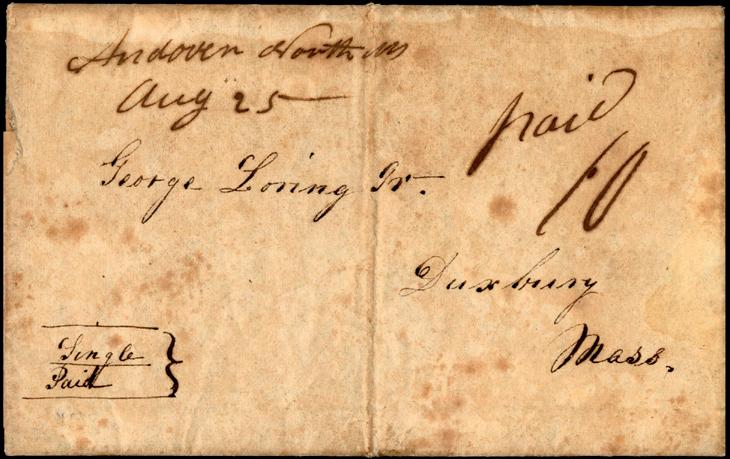 Andover North Ms
Aug 25
paid
10
George Loring Jr.
Duxbury
Mass.
Single
Paid